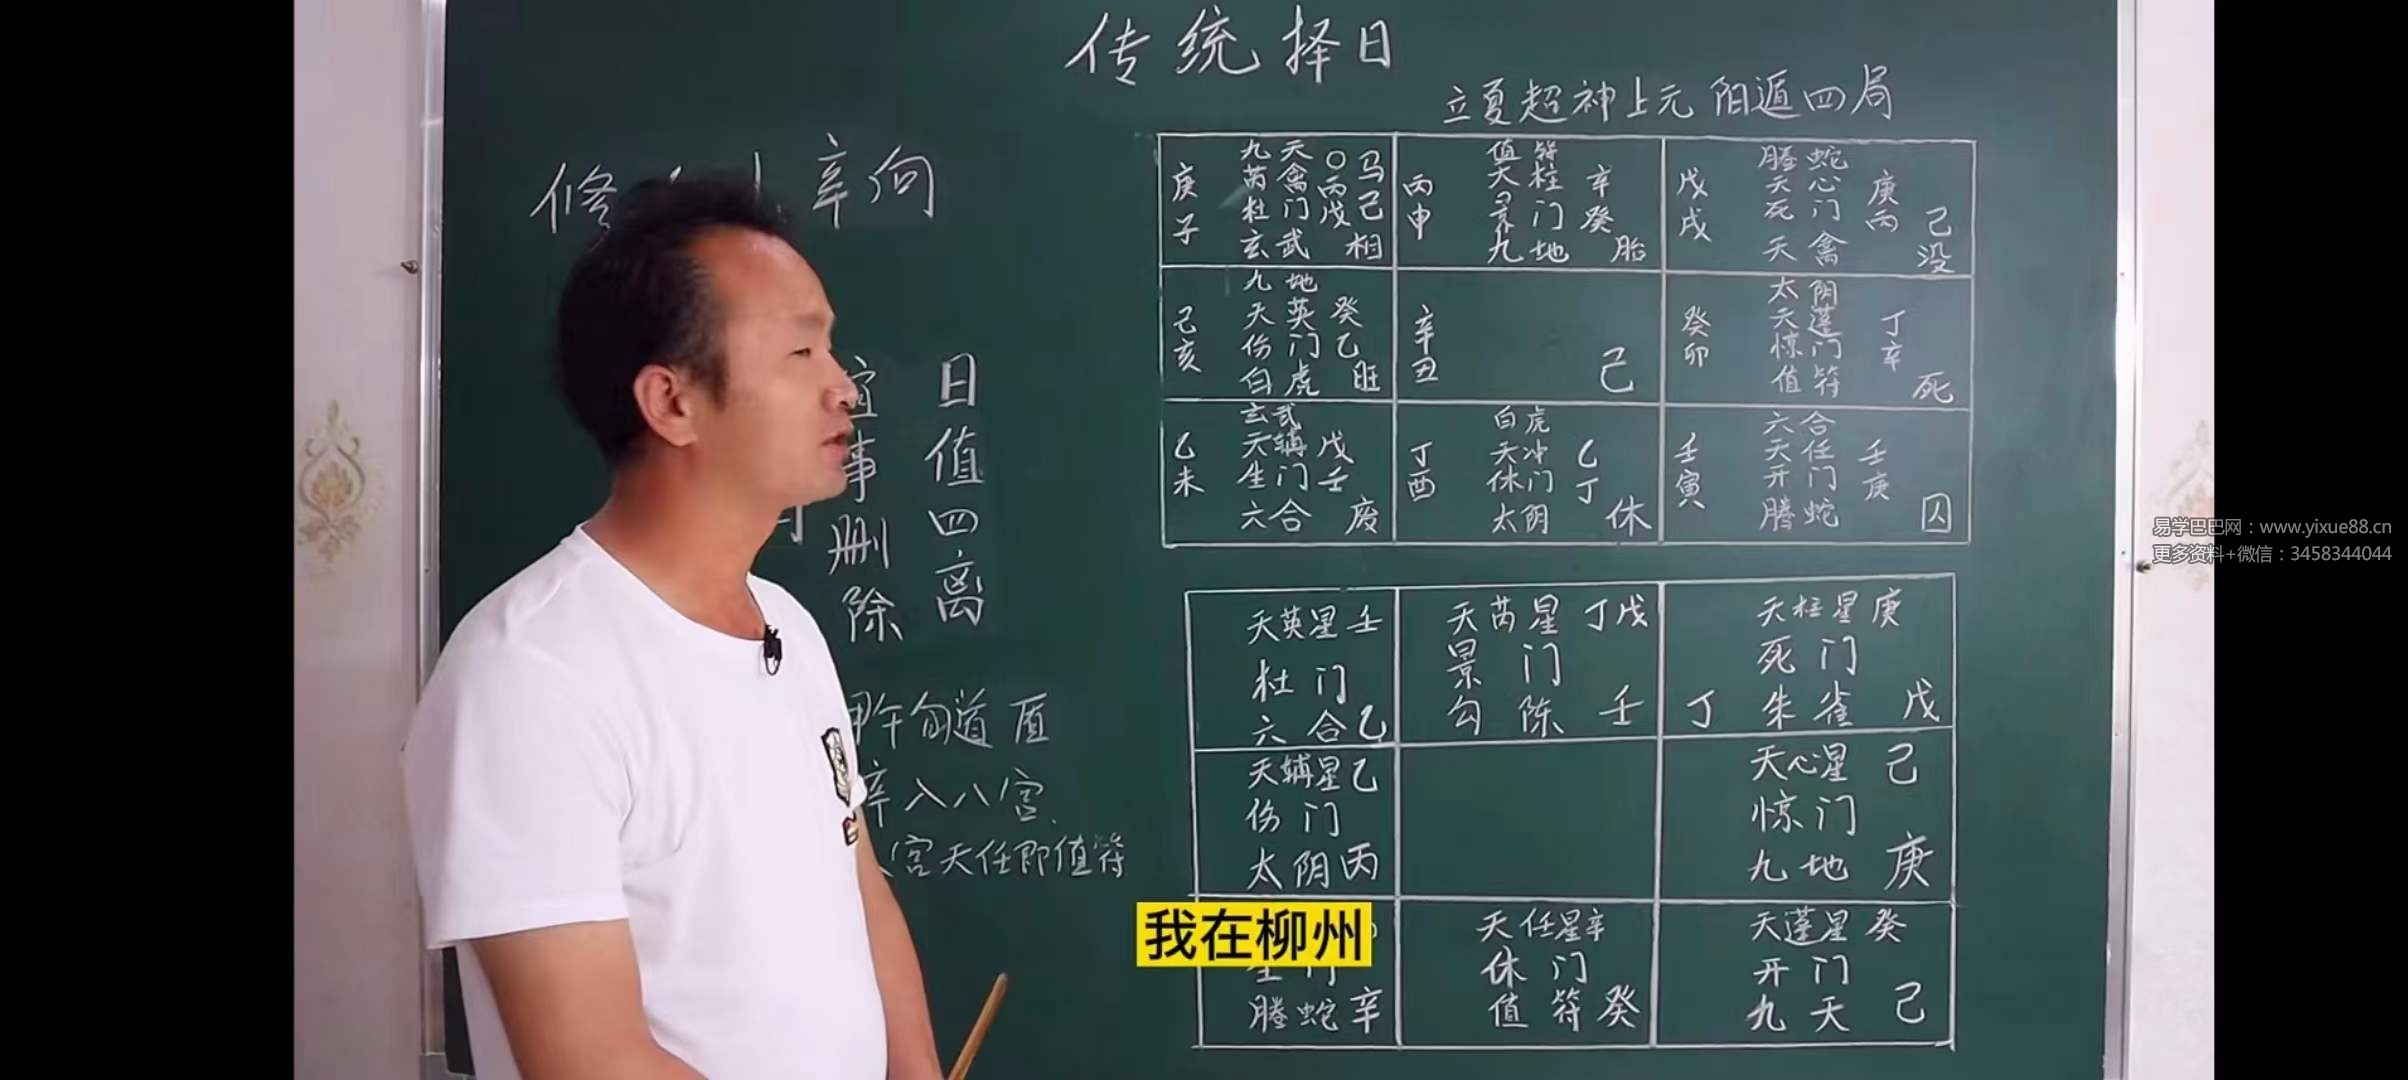 传统择日
立夏超神上元 阳遁四局
修 辛向
日值四离
宜事删除
甲午旬遁盾
辛入八宫
宫天任即值符
庚子
九天 〇 马
芮禽 丙
杜门 戊 己
玄武 相
丙申
值符
天柱 辛
景门 癸
九地 胎
戊戌
腾蛇
天心 庚
死门 丙 己
天禽 没
己亥
九地
天英 癸
伤门 乙
白虎 旺
辛丑
己
癸卯
太阴
天蓬 丁
惊门 辛
值符 死
乙未
玄武
天辅 戊
生门 壬
六合 废
丁酉
白虎
天冲 乙
休门 丁
太阴 休
壬寅
六合
天任 壬
开门 庚
腾蛇 囚
天英星 壬
杜门
六合 乙
天芮星 丁戊
景门
勾陈 壬
天柱星 庚
死门
丁 朱雀 戊
天辅星 乙
伤门
太阴 丙
天心星 己
惊门
九地 庚
生门
腾蛇 辛
天任星 辛
休门
值符 癸
天蓬星 癸
开门
九天 己
我在柳州
易学巴巴网：www.yixue88.cn
更多资料+微信：3458344044